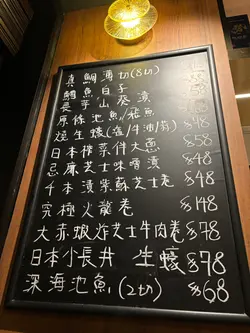 真鯛薄切(8切)
鱈魚白子
長芋山葵漬
原條池魚/飛魚 $48
燒生蠔(塩/牛油/翁) $48
日本榨菜伴大魚 $58
忌廉芝士味噌漬 $48
千本漬紫蘇芝士卷 $48
究極火龍卷 $148
大赤蝦炸芝士牛肉卷 $78
日本小長井 生蠔 $78
深海池魚(2切) $68